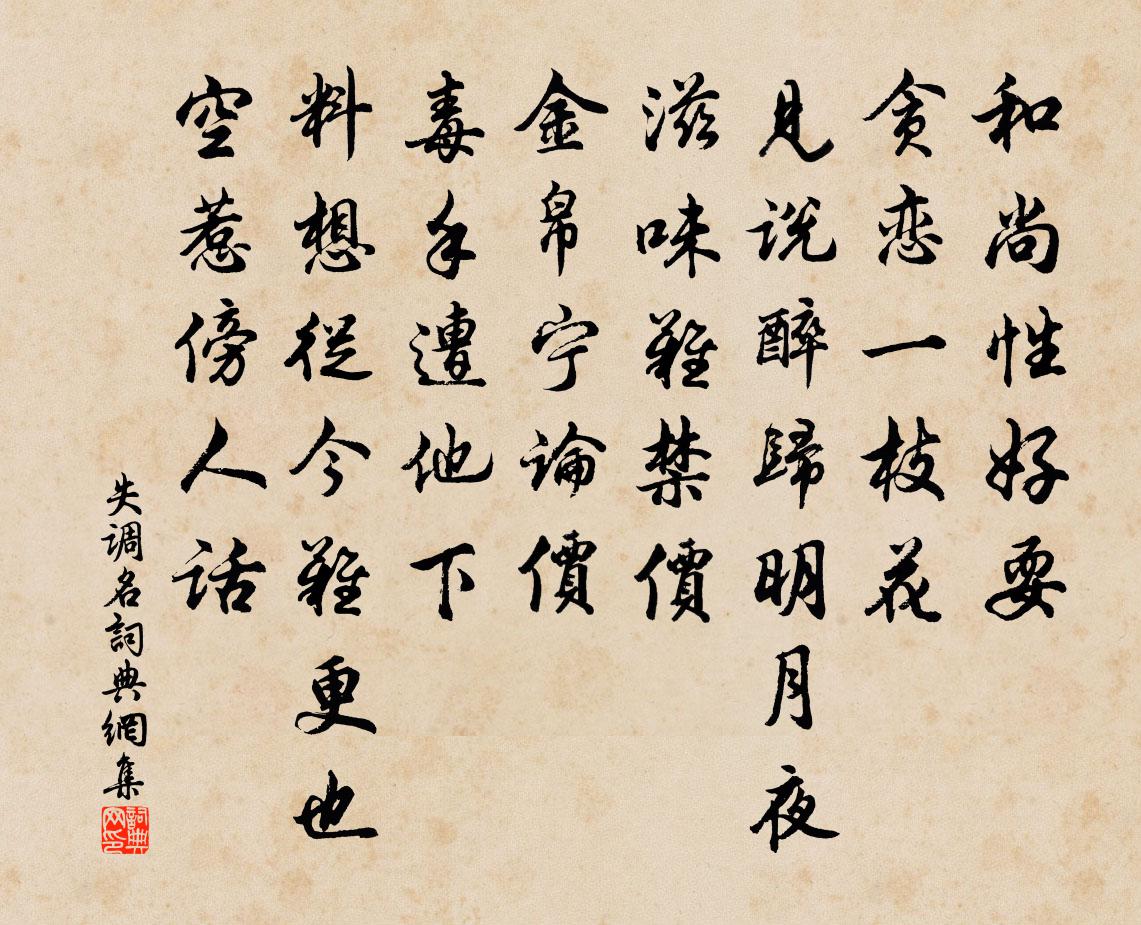 和尚性好耍
贪恋一枝花
見说醉歸明月夜
滋味難禁價
金帛宁論價
毒手遭他下
料想從今難更也
空惹傍人话
失调名詞典網集
詞典网印